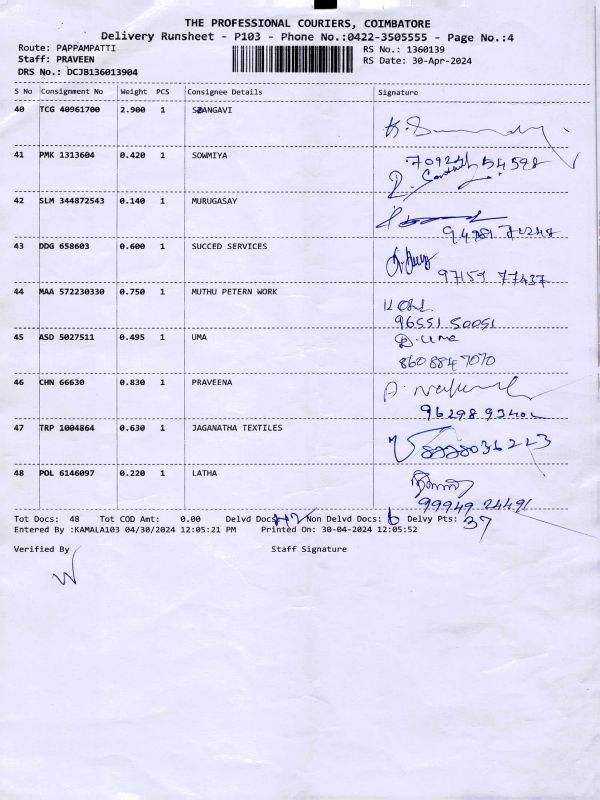 THE PROFESSIONAL COURIERS, COIMBATORE
Delivery Runsheet - P103 - Phone No.:0422-3505555 - Page No.:4
Route: PAPPAMPATTI
RS No.: 1360139
Staff: PRAVEEN
RS Date: 30-Apr-2024
DRS No.: DCJB136013904
S No Consignment No Weight PCS Consignee Details Signature
40 TCG 40961700 2.900 1 SANGAVI
41 PMK 1313604 0.420 1 SOWMIYA
42 SLM 344872543 0.140 1 MURUGASAY
43 DDG 658603 0.600 1 SUCCED SERVICES
97159 77437
44 MAA 572230330 0.750 1 MUTHU PETERN WORK
96551 50051
45 ASD 5027511 0.495 1 UMA
D. Uma
860 884 7070
46 CHN 66630 0.830 1 PRAVEENA
47 TRP 1004864 0.630 1 JAGANATHA TEXTILES
48 POL 6146097 0.220 1 LATHA
99949 24491
Tot Docs: 48 Tot COD Amt: 0.00 Delvd Docs: 42 Non Delvd Docs: 6 Delvy Pts: 37
Entered By :KAMALA103 04/30/2024 12:05:21 PM Printed On: 30-04-2024 12:05:52
Verified By Staff Signature